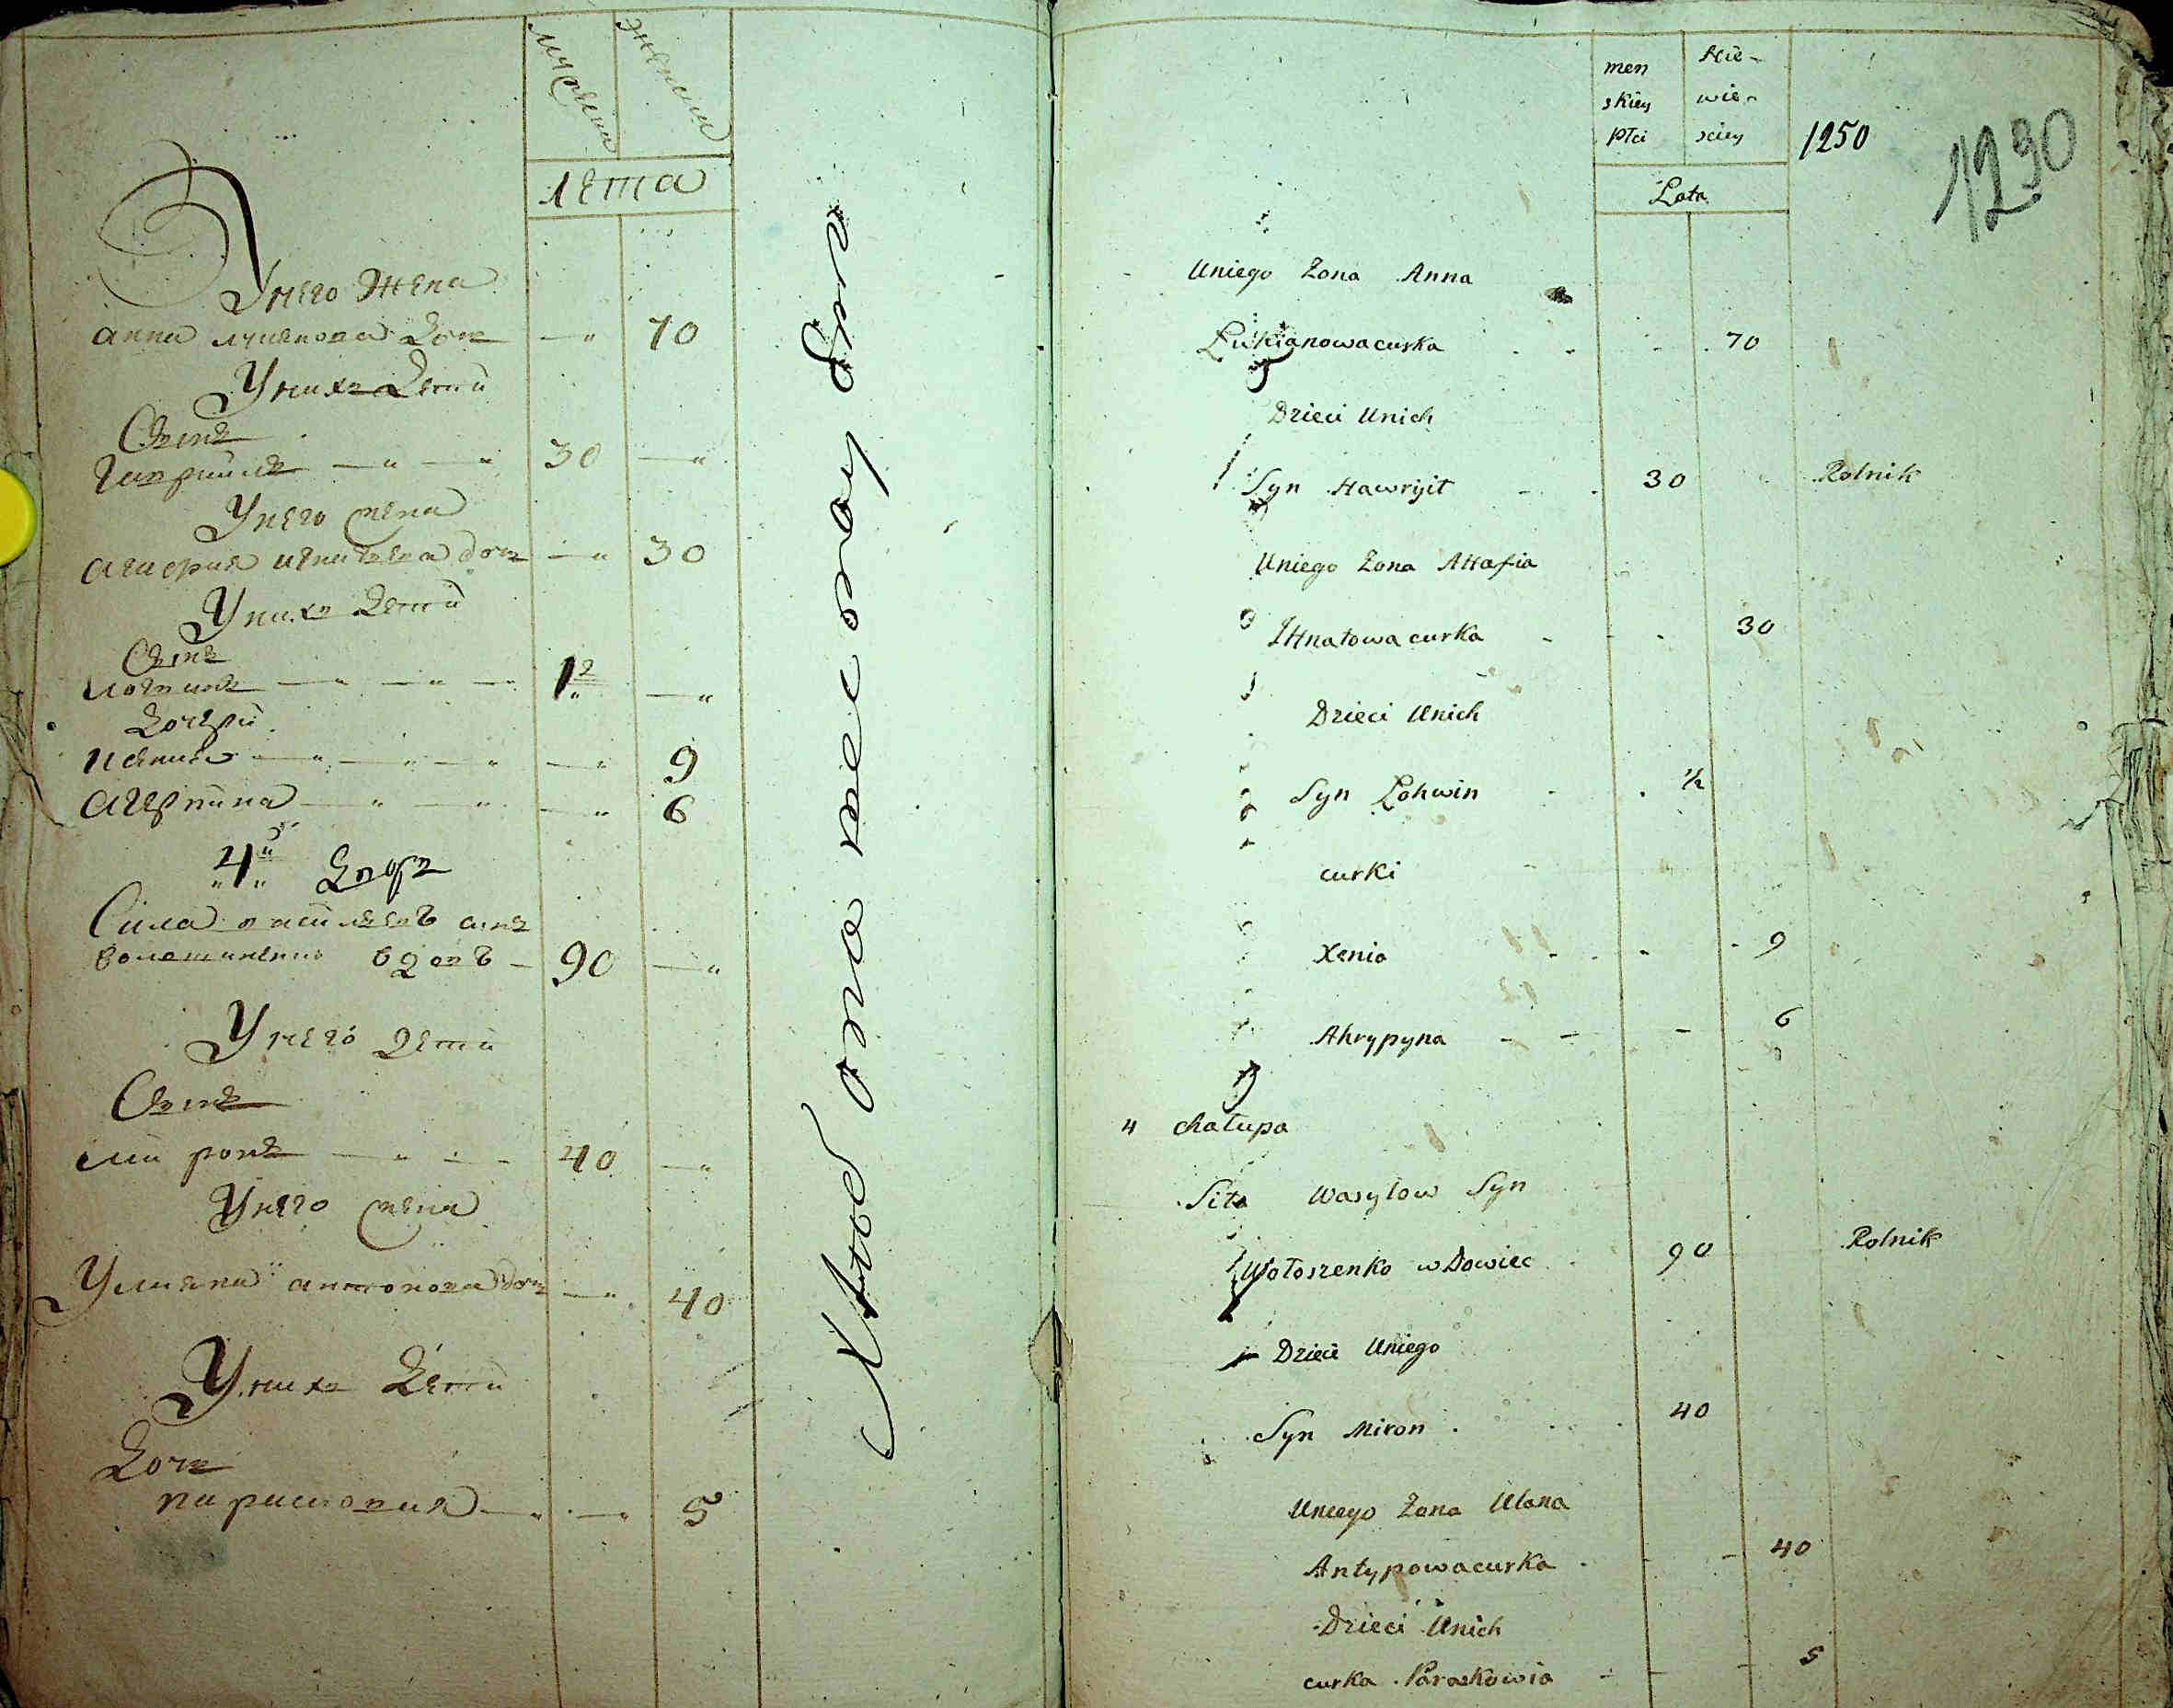 мужеска
женска
лета
У него жена
анна лукянова дочь 70
У них дети
Сынъ
гаврилъ 30
У него жена
агафия игнатьева дочь 30
У них дети
Сынъ
логвинъ 1/2
дочери
ксения 9
агерпина 6
4й дворъ
Сила василевъ сынъ
волошиненко вдовъ 90
У него дети
Сынъ
миронъ 40
У него жена
Улияна антонова дочь 40
У них дети
дочь
парасковия 5
men
skiey
płci
Nie-
wie-
sciey
1250
1290
Lata
Uniego Zona Anna
Łukianowacurka 70
Dzieci Unich
Syn Hawryił 30 Rolnik
Uniego Zona AHafia
IHnatowa curka 30
Dzieci Unich
Syn Lohwin 1/2
curki
Xenia 9
Ahrypyna 6
4 chałupa
Siła Wasylow Syn
Wołoszenko wdowiec 90 Rolnik
Dzieci Uniego
Syn Miron 40
Uniego Zona Ulana
Antypowacurka 40
Dzieci Unich
curka Paraskowia 5